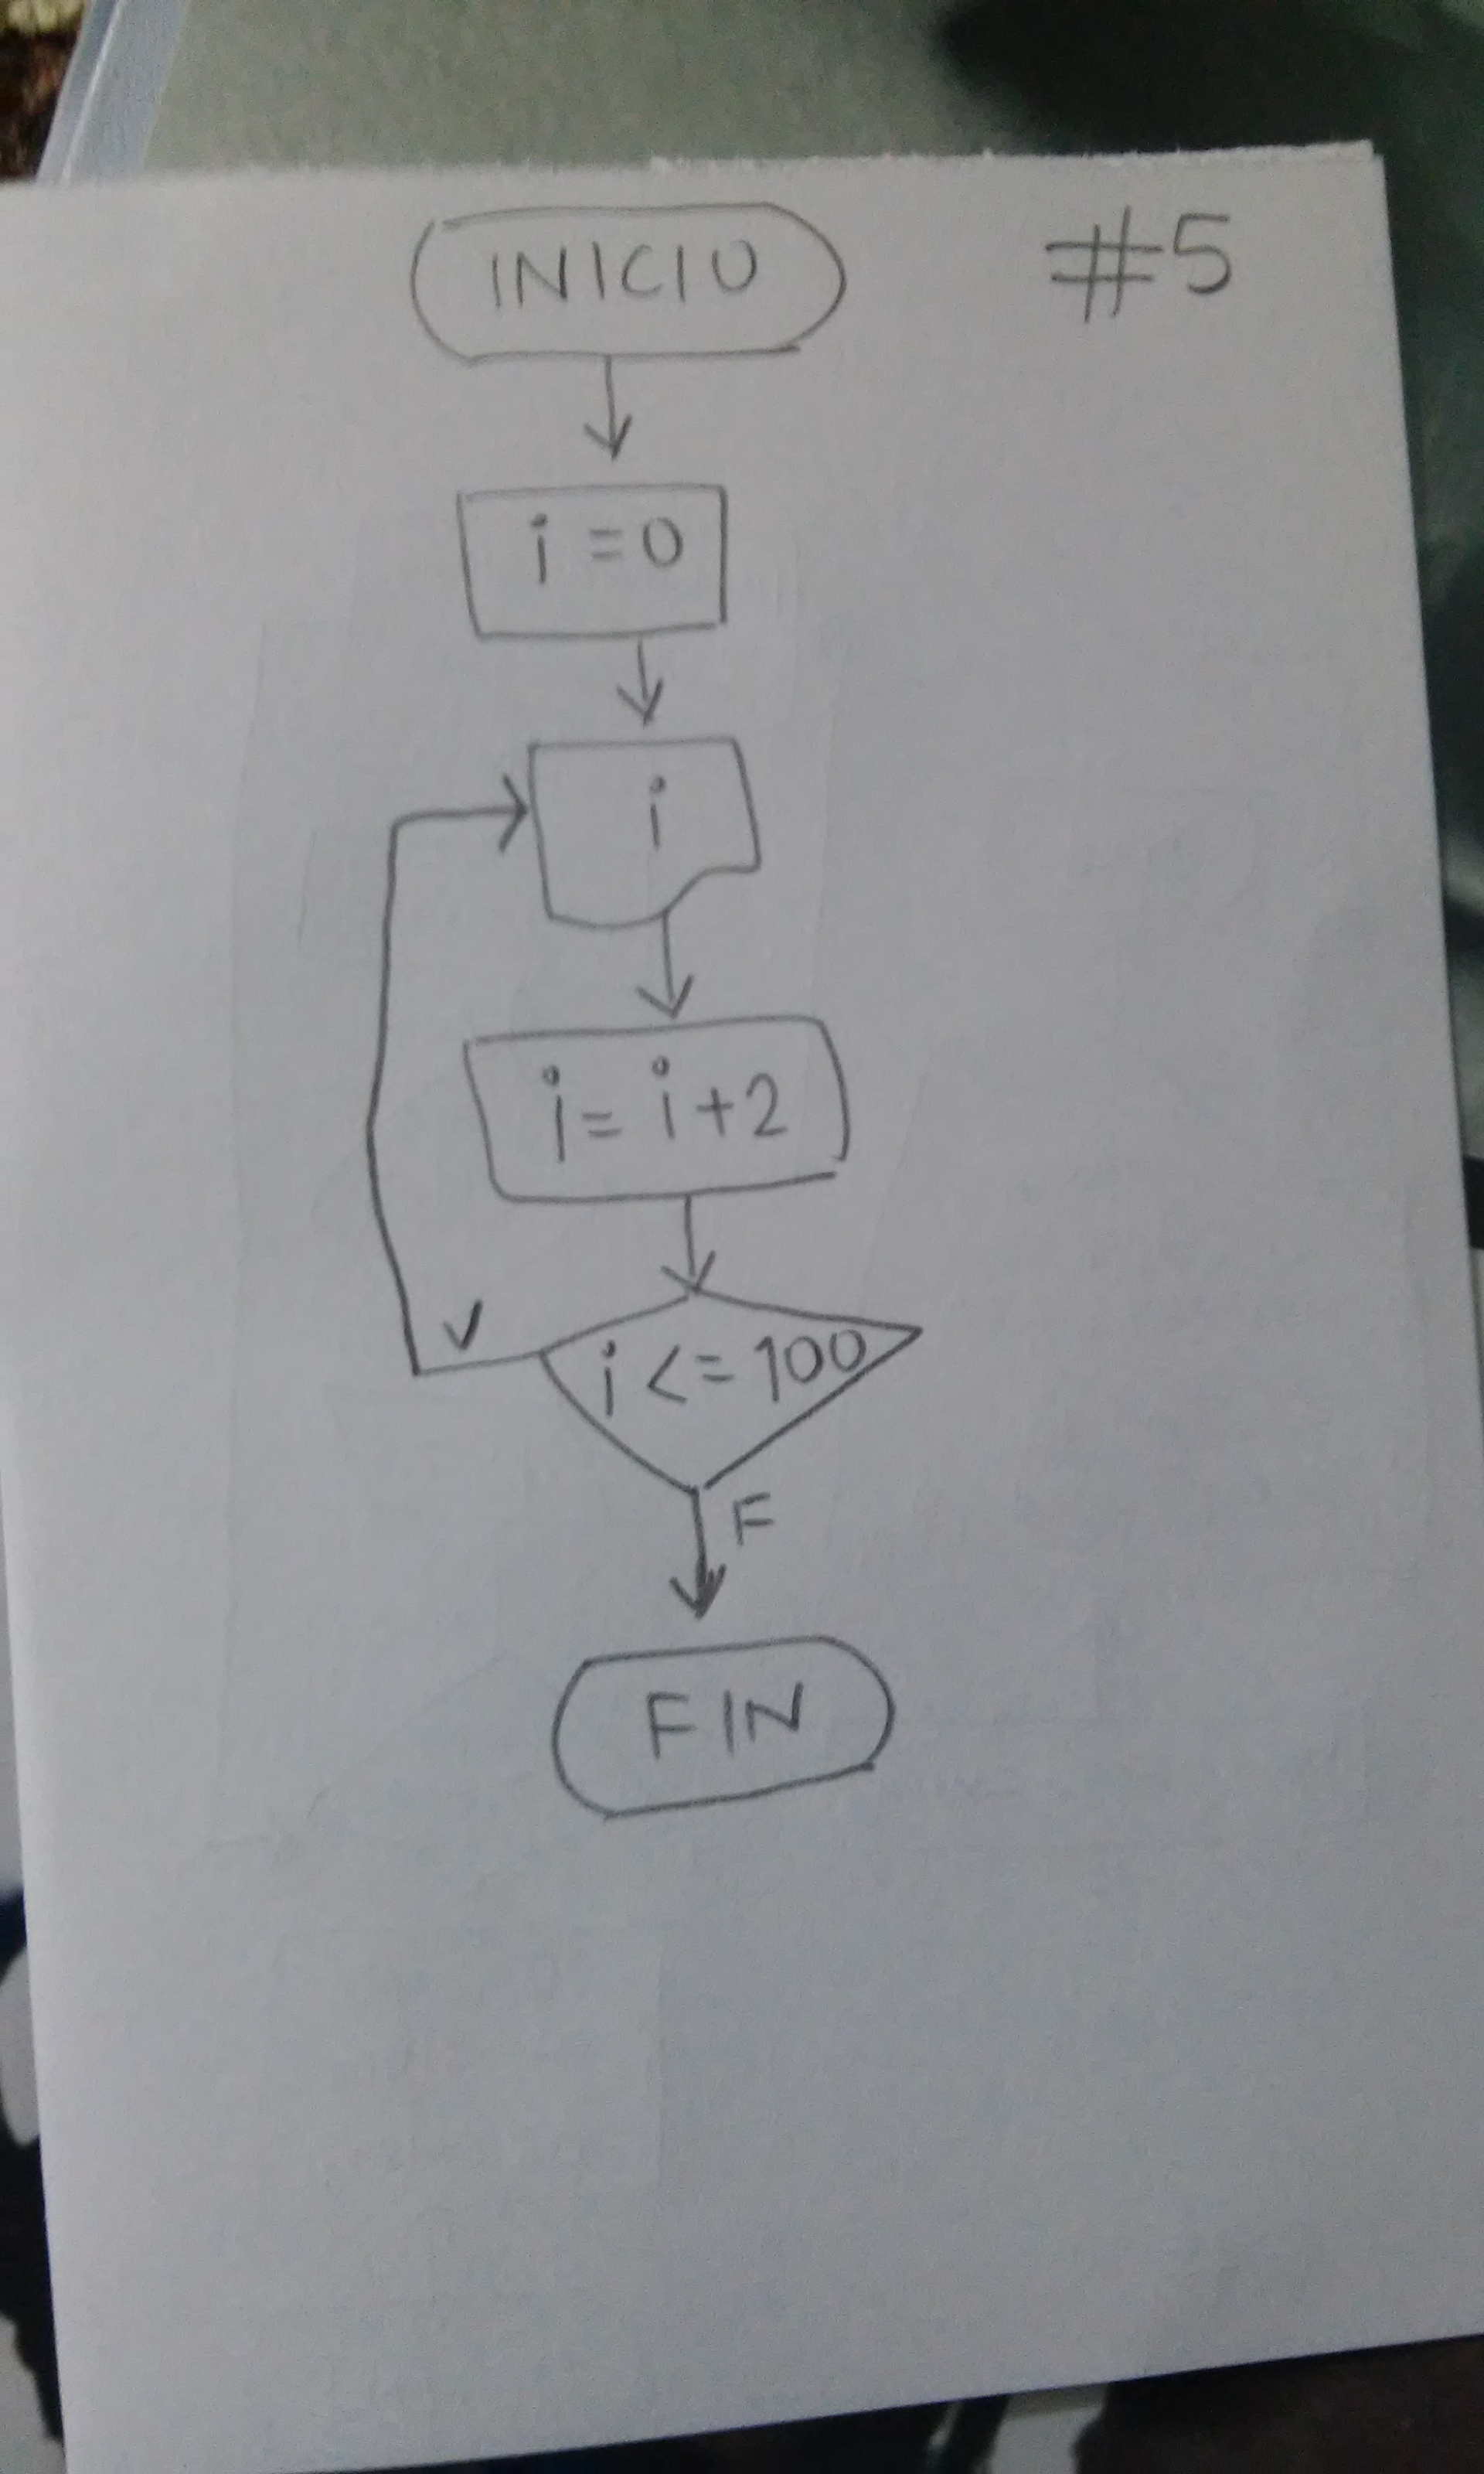 INICIO
#5
i=0
i
i=i+2
i<=100
V
F
FIN